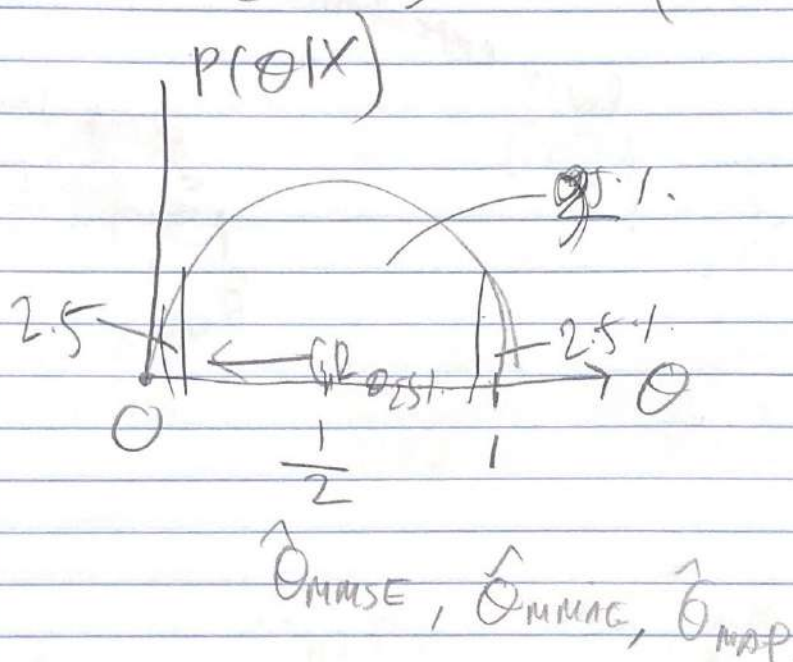 P(θ|X)
95%
2.5
2.5%
CR θ, 95%
θ
0
1/2
1
θ̂MMSE, θ̂MMAE, θ̂MAP